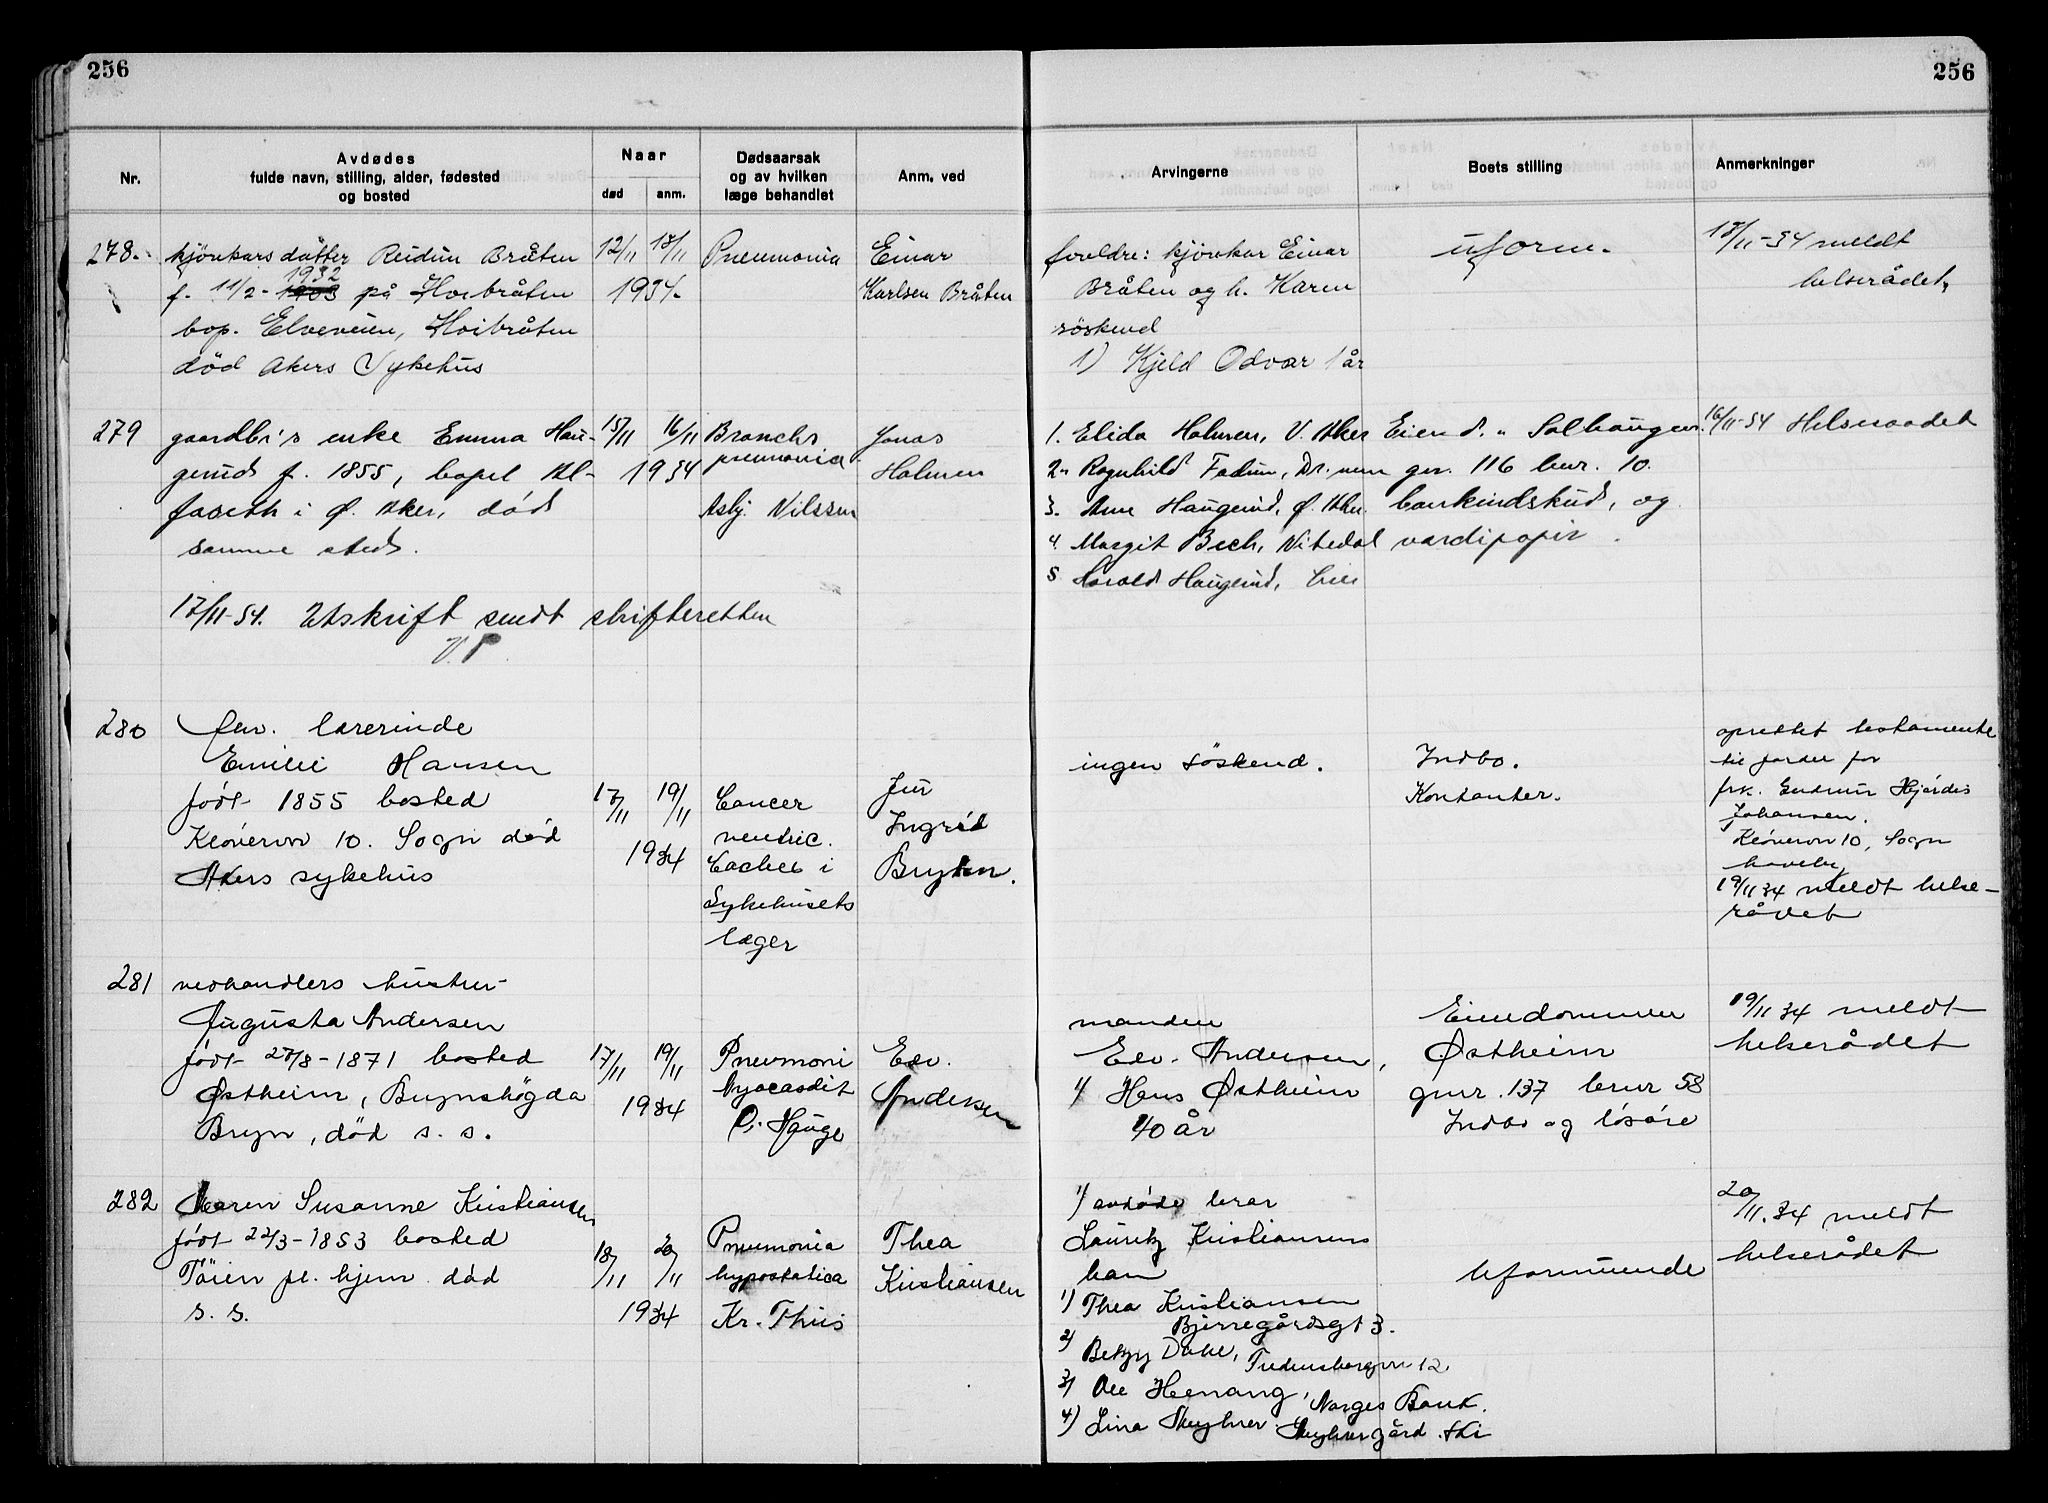 256
256
Nr.
Avdødes
fulde navn, stilling, alder, fødested
og bosted
Naar
død
anm.
Dødsaarsak
og av hvilken
læge behandlet
Anm. ved
Arvingerne
Boets stilling
Anmerkninger
278.
kjörekars datter Reidun Bråten
f. 11/2- 1932 på Høibråten
bop. Elveveien, Høibråten
död Akers Sykehus
12/11 18/11
1934.
Pneumonia
Einar
Karlsen Bråten
foreldre: kjörekar Einar
Bråten og h. Karen
söskend
1) Kjeld Odvar 1 år
uform.
18/11-34 meldt
helserådet,
279
gaardbr's enke Emma Hau-
gerud f. 1855, bopel Al-
faseth i Ø. Aker, död
samme sted.
15/11 16/11
1934
Broncho
pneumonia
Asbj. Nilssen
Jonas
Holmen
1. Elida Holmen, V. Aker
2. Ragnhild Fadum, Dr.men
3. Arne Haugerud, Ø. Aker
4. Margit Bech, Nitedal
5 Harald Haugerud,
Eiend. "Solhaugen"
gnr. 116 bnr. 10.
bankindskud, og
værdipapir.
16/11-34 Helseraadet
17/11-34. Utskrift sendt skifteretten
V.P.
280
fhv. lærerinde
Emilie Hansen
född 1855 bosted
Klövervn 10. Sogn död
Akers sykehus
17/11 19/11
1934
Cancer
ventric.
Cachex i
Sykehusets
læger
Jur
Ingrid
Bryhn.
ingen söskend.
Indbo.
Kontanter.
oprettet testamente
til fordel for
frk. Gudrun Hjördis
Johansen.
Klövervn 10, Sogn
haveby
19/11 34 meldt helse-
rådet
281
vedhandlers hustru
Augusta Andersen
född 27/8-1871 bosted
Østheim, Brynshögda
Bryn, död s. s.
17/11 19/11
1934
Pneumoni
Myocardit
P. Hauge
Edv.
Andersen
manden
Edv. Andersen,
1) Hans Østheim
40 år
Eiendommen
Østheim
gnr. 137 bnr 58
Indbo og lösöre
19/11 34 meldt
helserådet
282
Maren Susanne Kristiansen
född 22/3-1853 bosted
Töien pl. hjem död
s. s.
18/11 20/11
1934
Pneumonia
hypostatica
Kr. Thiis
Thea
Kristiansen
1) avdöde bror
Lauritz Kristiansens
barn
1) Thea Kristiansen
Bjerregårdsgt 3.
2) Betzy Dahl, Fredensborgvn 12
3) Ole Henang, Norges Bank.
4) Lina Skuhrer Skuhrergård. Ski
Uformuende
20/11. 34 meldt
helserådet